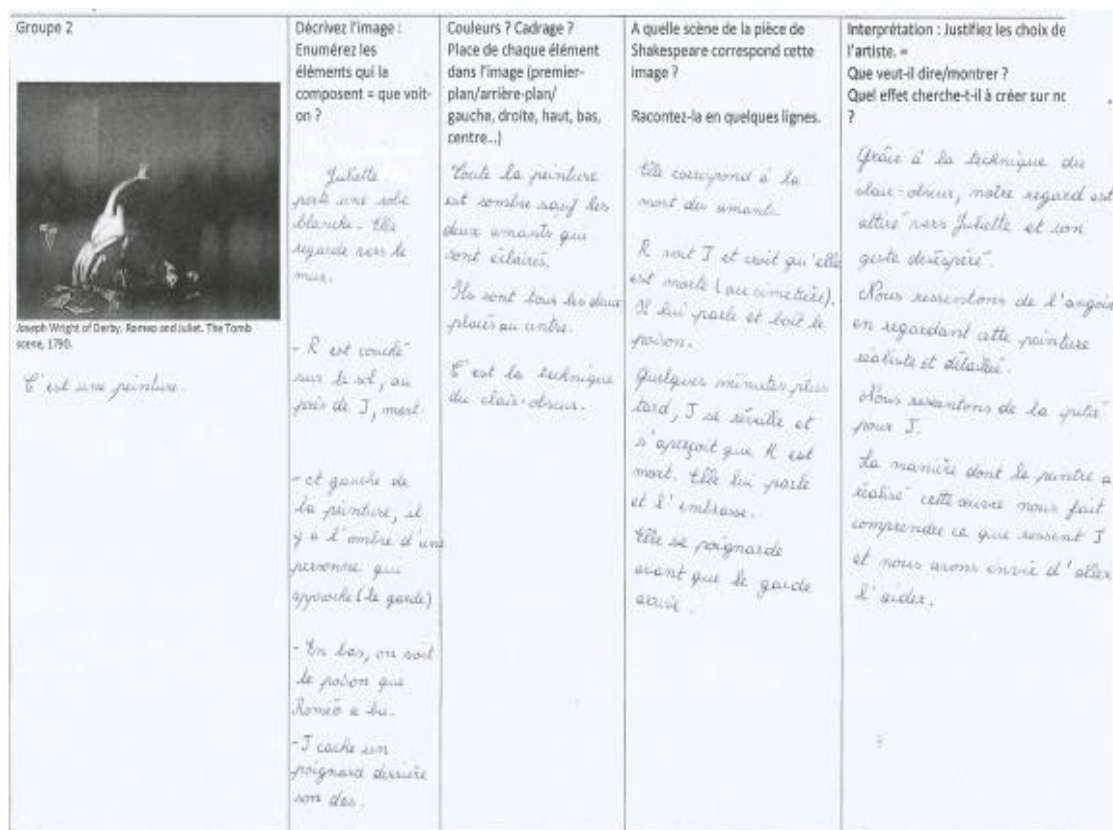 Groupe 2
Joseph Wright of Derby. Romeo and Juliet. The Tomb
scene, 1790.
C'est une peinture.
Décrivez l'image :
Enumérez les
éléments qui la
composent = que voit-
on ?
Juliette
porte une robe
blanche. Elle
regarde vers le
mur.
- R est couché
sur le sol, au
près de J, mort
- et gauche de
la peinture, il
y a l'ombre d'une
personne qui
approche (le garde)
- En bas, on voit
le poison que
Roméo a bu.
- J cache un
poignard derrière
son dos.
Couleurs ? Cadrage ?
Place de chaque élément
dans l'image (premier-
plan/arrière-plan/
gauche, droite, haut, bas,
centre...)
Toute la peinture
est sombre sauf les
deux amants qui
sont éclairés.
Ils sont tous les deux
placés au centre.
C'est la technique
du clair-obscur.
A quelle scène de la pièce de
Shakespeare correspond cette
image ?
Racontez-la en quelques lignes.
Elle correspond à la
mort des amants.
R voit J et croit qu'elle
est morte (au cimetière).
Il lui parle et boit le
poison.
Quelques minutes plus
tard, J se réveille et
s'aperçoit que R est
mort. Elle lui parle
et l'embrasse.
Elle se poignarde
avant que le garde
arrive.
Interprétation : Justifiez les choix de
l'artiste. =
Que veut-il dire/montrer ?
Quel effet cherche-t-il à créer sur no
?
Grâce à la technique du
clair-obscur, notre regard est
attiré vers Juliette et son
geste désespéré.
Nous ressentons de l'angois
en regardant cette peinture
réaliste et détaillé.
Nous ressentons de la pitié
pour J.
La manière dont le peintre a
réalisé cette œuvre nous fait
comprendre ce que ressent J
et nous avons envie d'aller
l'aider.